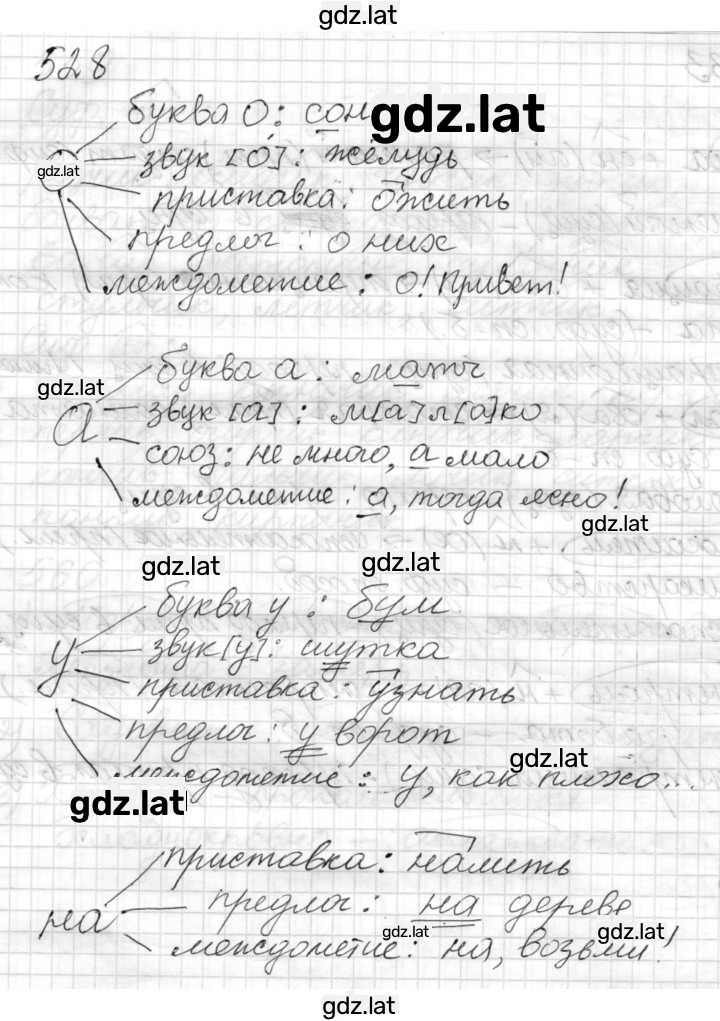 gdz.lat
528
буква о: сон
gdz.lat
gdz.lat
звук [о́]: жёлудь
приставка: ожить
предлог: о них
междометие: о! Привет!
буква а: матч
gdz.lat
а
звук [а]: м[а]л[а]ко
союз: не много, а мало
междометие: а, тогда ясно!
gdz.lat
gdz.lat
gdz.lat
буква у: бум
у
звук [у]: шутка
приставка: узнать
предлог: у ворот
gdz.lat
междометие: у, как плохо...
gdz.lat
приставка: налить
на
предлог: на дереве
gdz.lat
gdz.lat
междометие: на, возьми!
gdz.lat